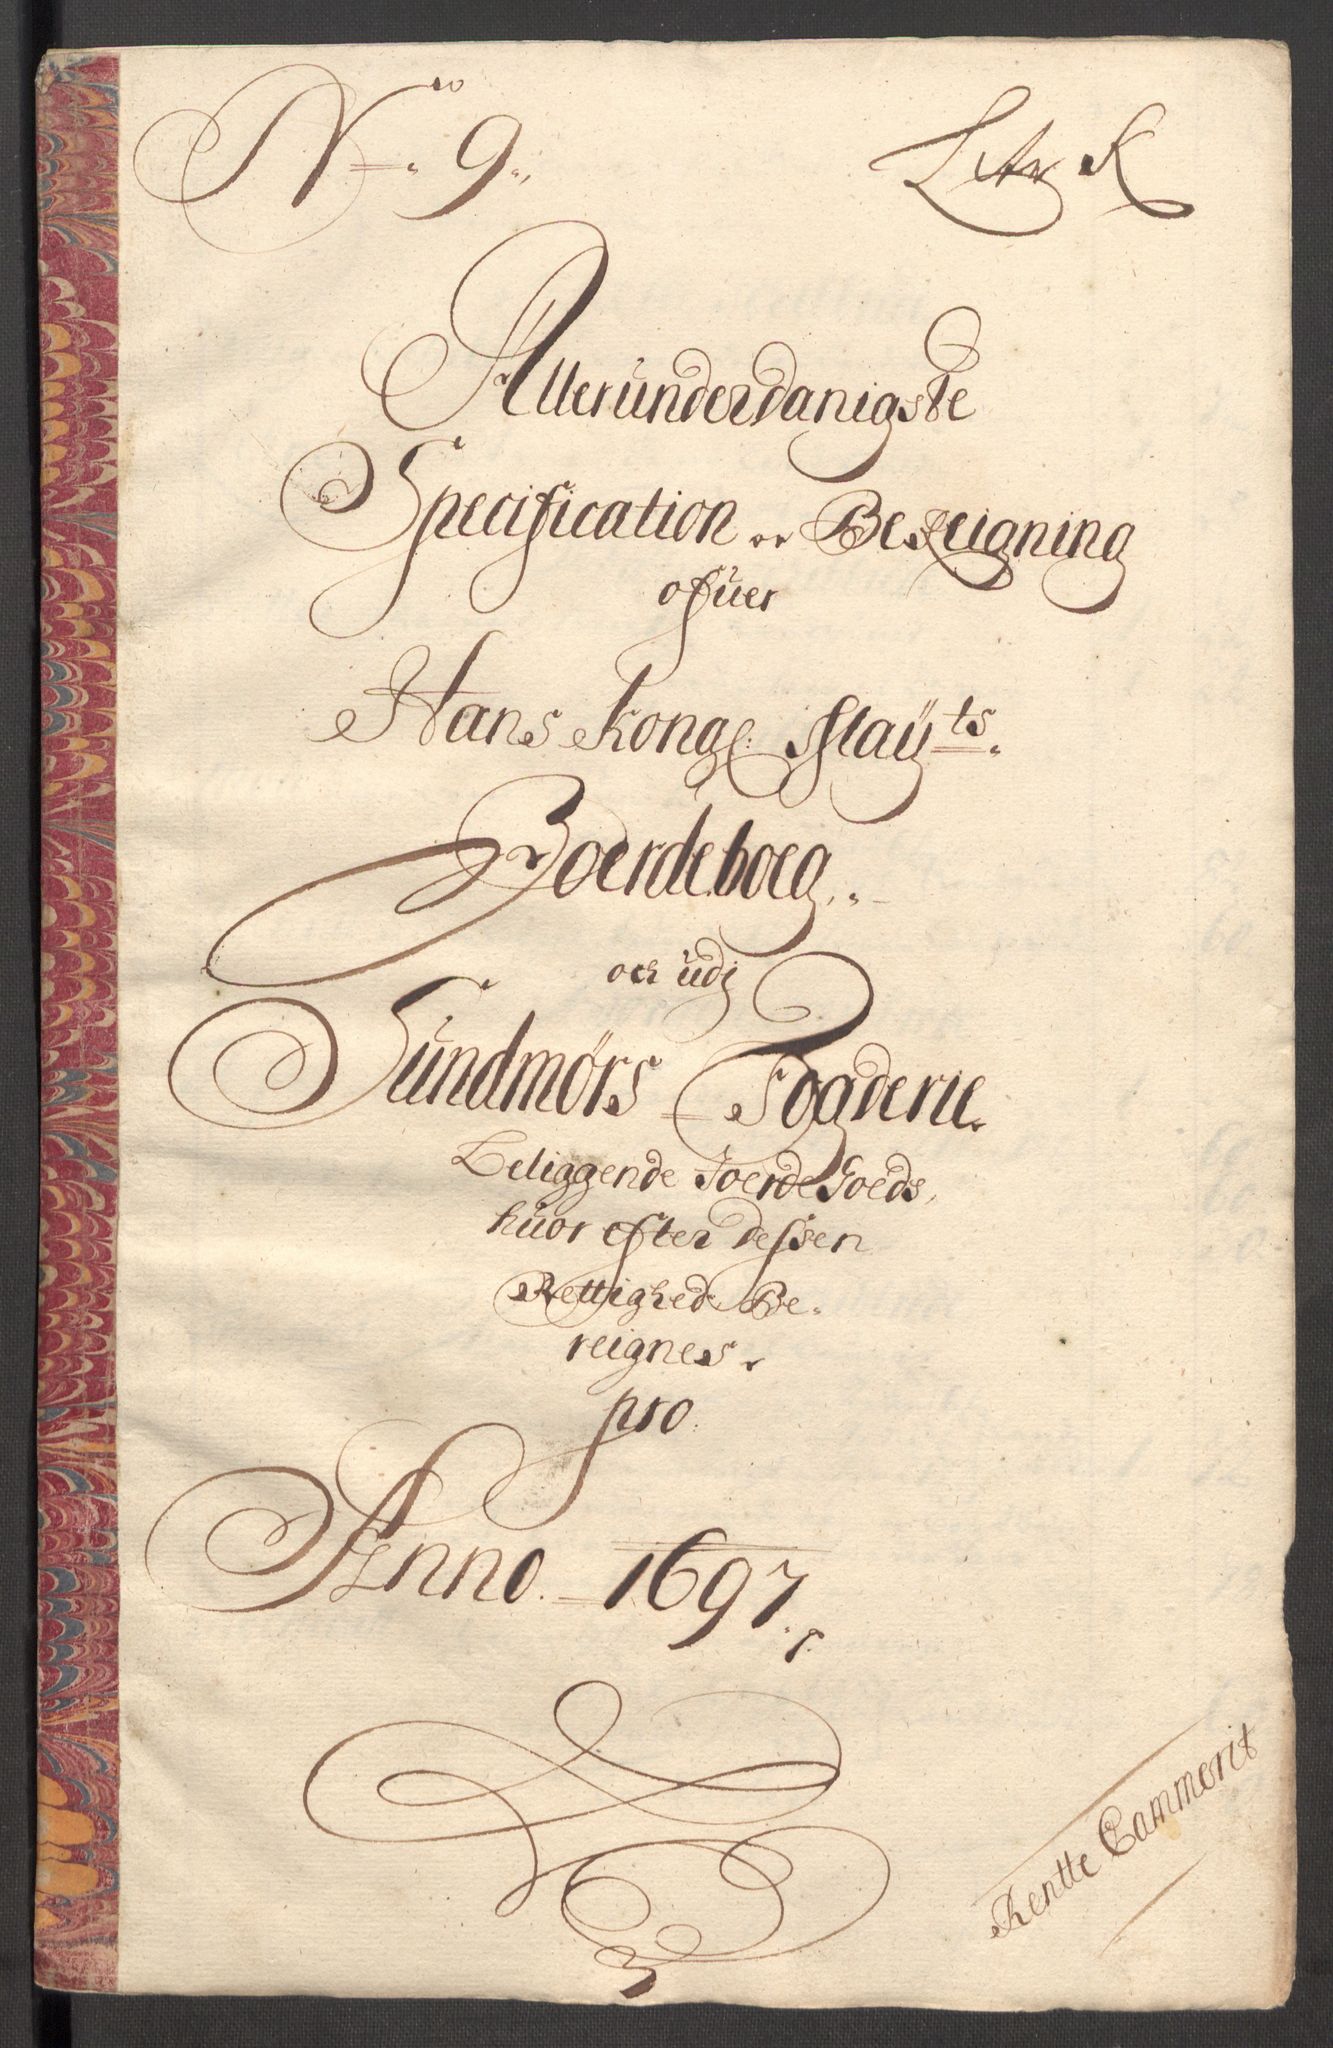 No 9.
Litr K
Allerunderdanigste
Specification .. Bereigning
ofuer
Hans Kongl: Maÿts.
Joerdeboeg..
och udj
Sundmørs Fogderie.
Beliggende Joerde Goeds,
huor efter dessen
Rettighed Be-
reignes.
pro.
Anno. 1697.
Rentte Cammerit